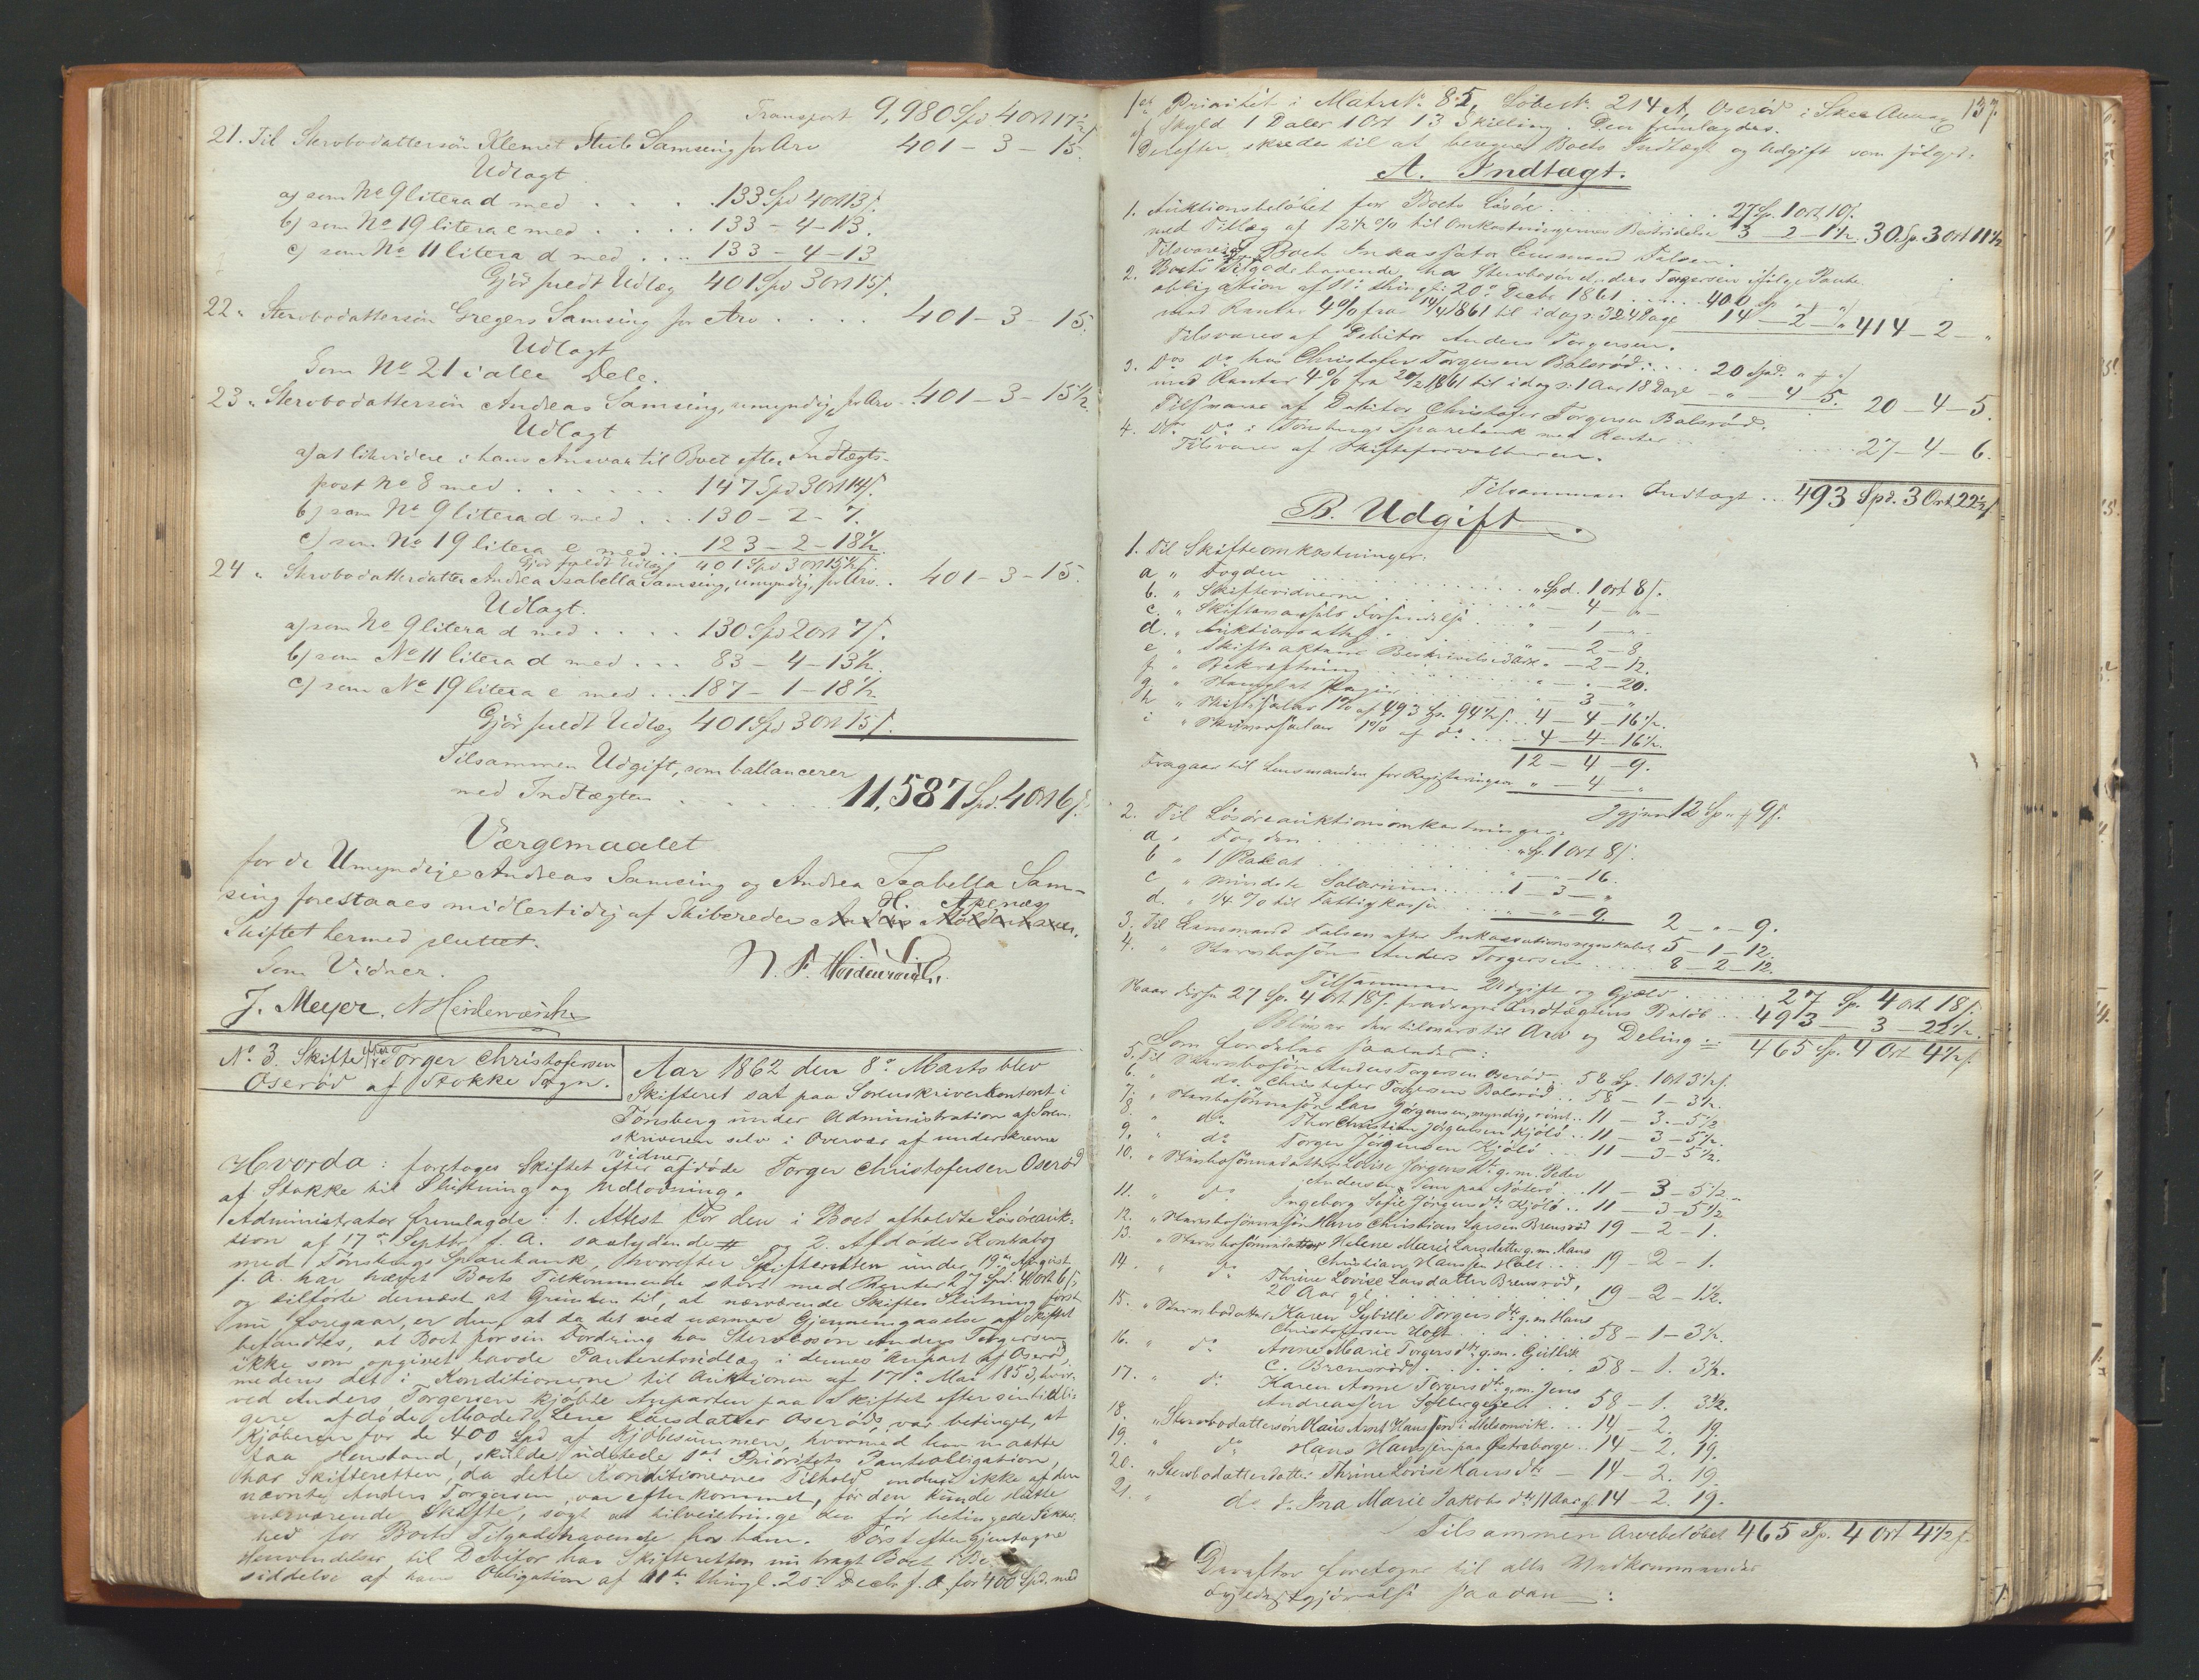 Transport 9,980 Spd 4 ort 17½ s.
21. Til Stervbodattersøn Klemet Stub Samsing for Arv 401 – 3 – 15.
Udlagt
a) som No 9 litera d med . . . . 133 Spd 4 ort 13 s.
b) som No 19 litera e med . . . . 133 – 4 – 13.
c) som No 11 litera d med . . . . 133 – 4 – 13
Gjør fuldt Udlæg 401 Spd 3 ort 15 s.
22 " Stervbodattersøn Gregers Samsing for Arv . . . . 401 – 3 – 15.
Udlagt
Som No 21 i alle Dele.
23 " Stervbodattersøn Andreas Samsing, umyndig, for Arv . . 401 – 3 – 15½.
Udlagt
a) at likvidere i hans Ansvar til Boet efter Indtægts-
post No 8 med . . . . . . 147 Spd 3 ort 14 s.
b) som No 9 litera d med . . . 130 – 2 – 7.
c) som No 19 litera e med . . 123 – 2 – 18½.
Gjør fuldt Udlæg 401 Spd 3 ort 15½ s.
24 " Stervbodatterdatter Andrea Isabella Samsing, umyndig, for Arv. . 401 – 3 – 15.
Udlagt.
a) som No 9 litera d med . . . . 130 Spd 2 ort 7 s.
b) som No 11 litera d med . . . 83 – 4 – 13½.
c) som No 19 litera e med . . . 187 – 1 – 18½
Gjør fuldt Udlæg 401 Spd 3 ort 15 s.
Tilsammen Udgift, som ballancerer
med Indtægten . . . . . . 11,587 Spd. 4 ort 6 s.
Værgemaalet
for de Umyndige Andreas Samsing og Andrea Isabella Sam-
sing forestaaes midlertidig af Skibsreder H. Apenæs
Skiftet hermed sluttet.
Som Vidner.
N. F. Heidenreich.
J. Meyer. N Heidenreich
No 3. Skifte efter Torger Christofersen
Oserød af Stokke Sogn.
Aar 1862 den 8de Marts blev
Skifteret sat paa Sorenskriverkontoret i
Tønsberg under Administration af Soren-
skriveren selv i Overvær af underskrevne
Vidner.
Hvorda: foretoges Skiftet efter afdøde Torger Christofersen Oserød
af Stokke til Slutning og Udlodning.
Administrator fremlagde: 1. Attest for den i Boet afholdte Løsøreauk-
tion af 17de Septbr f. A. saalydende # og 2. Afdødes Kontrabog
med Tønsbergs Sparebank, hvorefter Skifteretten under 19de August
f. A. har hævet Boets Tilkommende stort med Renter 27 Spd. 4 ort 6 s,
og tilførte dernæst at Grunden til, at nærværende Skiftes Slutning først
nu foregaar, er den, at da det ved nærmere Gjennemgaaelse af Skiftet
befandtes, at Boet for sin Fordring hos Stervbosøn Anders Torgersen
ikke som opgivet havde Panteretsvidlæg i dennes Anpart af Oserød,
medens det i Konditionerne til Auktionen af 17de Mai 1853, hvor-
ved Anders Torgersen kjøbte Anparten paa Skiftet efter sin tidli-
gere afdøde Moder, Lene Larsdatter Oserød, var betinget, at
Kjøberen for de 400 Spd af Kjøbesummen, hvormed han maatte
faa Henstand, skulde udstede 1ste Prioritets Panteobligation,
har Skifteretten, da dette Konditionernes Tilhold endnu ikke af den
nævnte Anders Torgersen, var efterkommet, før den kunde slutte
nærværende Skifte, søgt at tilveiebringe den før betingede Sikker-
hed for Boets Tilgodehavende hos ham. Først efter gjentagne
Henvendelser til Debitor har Skifteretten nu bragt Boet i Be-
siddelse af hans Obligation af 11te thingl. 20de Decbr. f. A. for 400 Spd. med
1ste Prioritet i Matr.No. 85, Løbe No. 214 A, Oserød i Skee Annex 137.
af Skyld 1 Daler 1 Ort 13 Skilling. Den fremlagdes.
Derefter skredes til at beregne Boets Indtægt og Udgift som følger:
A. Indtægt.
1. Auktionsbeløbet for Boets Løsøre . . . . . . . 27 Sp. 1 ort 10 s.
med Tillæg af 12½ % til Omkostningernes Bestridelse 3 – 2 – 1½. 30 Sp. 3 ort 11½
Tilsvares Boets Inkassator Lensmand Falsen.
2. Boets Tilgodehavende hos Stervbosøn Anders Torgersen ifølge Pante-
obligation af 11te thingl: 20de Decbr 1861 . . . . . 400 Sp " "
med Renter 4% fra 14/4 1861 til idag: 324 Dage 14 – 2 – " 414 – 2 – "
Tilsvares af Debitor Anders Torgersen.
3. Dos Do hos Christofer Torgersen Balsrød: . . . . 20 Spd. " "
med Renter 4% fra 20/2 1861 til idag: 1 Aar 18 Dage – " – 4 – 5. 20 – 4 – 5.
Tilsvares af Debitor Christofer Torgersen Balsrød.
4. Do Do i Tønsbergs Sparebank med Renter . . . . . . 27 – 4 – 6.
Tilsvares af Skifteforvalteren.
Tilsammen Indtægt . . 493 Spd. 3 Ort 22½ s
B. Udgift.
1. Til Skifteomkostninger.
a " Fogden . . . . . . . . . . " Spd. 1 ort 8 s.
b. " Skiftevidnerne . . . . . . " – 4 – " –
c. " Skiftemapfels Forsendelse . . . . " – 1 – " –
d. " Auktionsattest . . . . . . " – 2 – 8.
e " Skifteaktens Beskrivelse 3 Ark " – 2 – 12.
f " Bekræftning . . . . . . " – " – 20.
g " Stemplet Papir . . . . . . " – 3 – "
h " Skiftesalær 1% af 493 Sp. 94½ s. . . 4 – 4 – 16½.
i " Skriversalær 1% af do . . . . . 4 – 4 – 16½.
12 – 4 – 9.
Fragaar til Lensmanden for Registeringen " – 4 – "
Igjen 12 Sp " 9 s.
2. Til Løsøreauktionsomkostninger.
a. " Fogden . . . . . . . . . " Sp. 1 ort 8 s.
b " 1 Plakat . . . . . . . " – " – 16.
c " mindste Salærium . . . . . 1 – 3 – "
d. " ¼ % til Fattigkassen . . . . " – " – 9. 2 – " – 9.
3. Til Lensmand Falsen efter Inkassationsregnskabet 5 – 1 – 12.
4. " Stervbosøn Anders Torgersen . . . . 8 – 2 – 12.
Tilsammen Udgift og Gjæld . . . . . . 27 Sp. 4 ort 18 s.
Naar disse 27 Sp. 4 Ort 18 s. fradrages Indtægtens Beløb . . 493 – 3 – 22½.
Bliver der tilovers til Arv og Deling . . : 465 Sp. 4 Ort 4½ s.
Som fordeles saaledes:
5. Til Stervbosøn Anders Torgersen Oserød . . 58 Sp. 1 ort 3½ s.
6. " do. Christofer Torgersen Balsrød . . 58 – 1 – 3½.
7. " Stervbosønnesøn Lars Jørgensen, myndig, . . 11 – 3 – 5½
8. " do Thor Christian Jørgensen Kjølø . . 11 – 3 – 5½.
9. " do Torger Jørgensen Kjølø . . . 11 – 3 – 5½.
10. " Stervbosønnedatter Lovise Jørgensdtr g. m. Peder
Andersen Tem paa Nøterø . . 11 – 3 – 5½.
11. " do Ingeborg Sofie Jørgensdtr Kjølø . . 11 – 3 – 5½
12. " Stervbosønnesøn Hans Christian Larsen Brensrød 19 – 2 – 1.
13. " Stervbosønnedatter Helene Marie Larsdatter g. m. Hans
Christian Hanssen Holt . . . 19 – 2 – 1.
14. " do Thrine Lovise Larsdatter Brensrød,
20 Aar gl. . . . . . . . 19 – 2 – 1½.
15. " Stervbodatter Karen Sybille Torgersdtr g. m. Hans
Christoffersen Holt . . . . . . 58 – 1 – 3½.
16. " do Anne Marie Torgersdtr g. m. Gullik
C. Brensrød . . . . . . . 58 – 1. 3½.
17. " do Karen Anne Torgersdtr g. m. Jens
Andreassen Solbergeje . . . 58 – 1. 3½.
18. " Stervbodattersøn Hans Arnt Hanssen i Melsomvik . . 14 – 2. 19.
19. " do Hans Hanssen paa Østreborge . . 14 – 2. 19.
20. " Stervbodatterdatter Thrine Lovise Hansdtr – 14 – 2. 19.
21. " do do Ina Marie Jakobsdtr 11 Aar gl 14 – 2. 19.
Tilsammen Arvebeløbet 465 Sp. 4 Ort 4½ s.
Derefter foretoges til alle Vedkommendes
Fyldestgjørelse saadan :